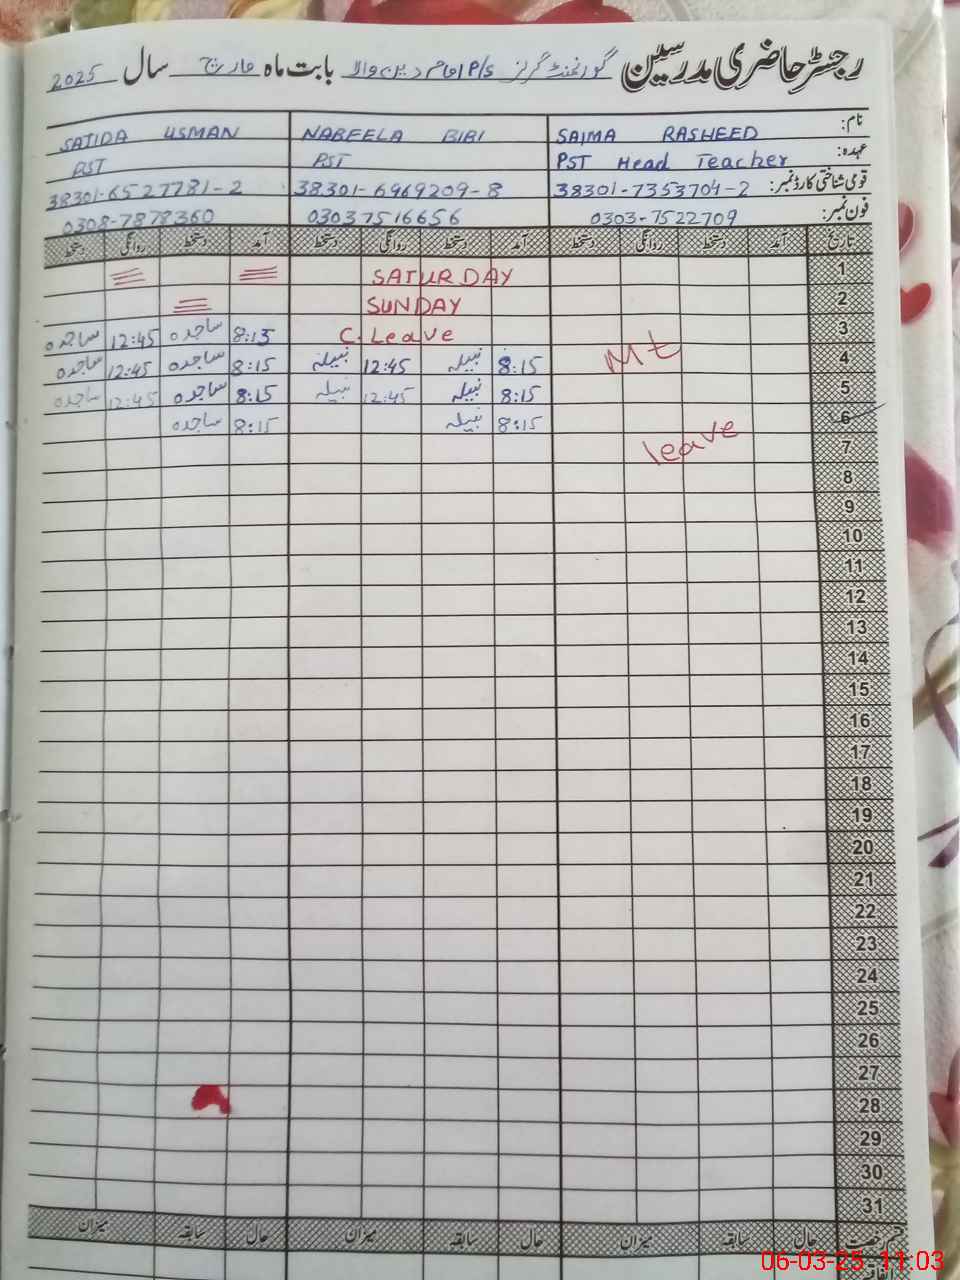 رجسٹر حاضری مدرسین گورنمنٹ گرلز P/S امام دین والا بابت ماہ مارچ سال 2025
نام: SAIMA RASHEED NABEELA BIBI SAJIDA USMAN
عہدہ: PST Head Teacher PST PST
قومی شناختی کارڈ نمبر: 38301-7353704-2 38301-6969209-8 38301-6527781-2
فون نمبر: 0303-7522709 03037516656 0308-7878360
تاریخ آمد دستخط روانگی دستخط آمد دستخط روانگی دستخط آمد دستخط روانگی دستخط
1 SATURDAY
2 SUNDAY
3 C. Leave 8:15 ساجدہ 12:45 ساجدہ
4 Mt 8:15 نبیلہ 12:45 نبیلہ 8:15 ساجدہ 12:45 ساجدہ
5 8:15 نبیلہ 12:45 نبیلہ 8:15 ساجدہ 12:45 ساجدہ
6 8:15 نبیلہ 8:15 ساجدہ
7 leave
8
9
10
11
12
13
14
15
16
17
18
19
20
21
22
23
24
25
26
27
28
29
30
31
قسم رخصت حال سابقہ میزان حال سابقہ میزان حال سابقہ میزان
06-03-25 11:03